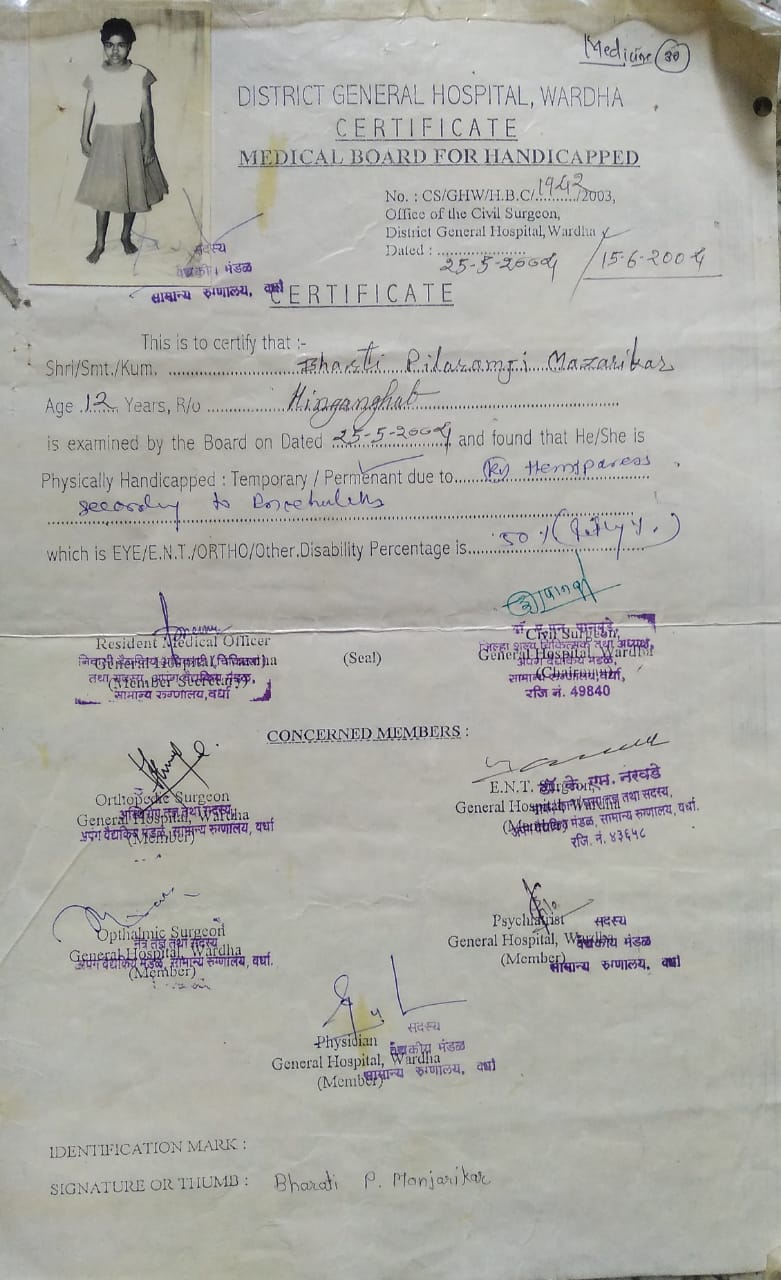 Medicine 30
DISTRICT GENERAL HOSPITAL, WARDHA
CERTIFICATE
MEDICAL BOARD FOR HANDICAPPED
No. : CS/GHW/H.B.C/.1942./2003,
Office of the Civil Surgeon,
District General Hospital, Wardha
Dated : 25-5-2004 / 15-6-2004
सदस्य
मंडळ
सामान्य रुग्णालय, वर्धा
CERTIFICATE
This is to certify that :-
Shri/Smt./Kum. Bharti Pilaramji Mazarikar
Age .12. Years, R/o Hinganghat
is examined by the Board on Dated 25-5-2004 and found that He/She is
Physically Handicapped : Temporary / Permenant due to (Rt) Hemiparesis
to
which is EYE/E.N.T./ORTHO/Other.Disability Percentage is 50 %
Resident Medical Officer
(Member Secretary)
तथा सदस्य, अपंग वैद्यकिय मंडळ,
सामान्य रुग्णालय, वर्धा
(Seal)
Civil Surgeon,
जिल्हा शल्य चिकित्सक तथा अध्यक्ष,
General Hospital, Wardha
अपंग वैद्यकिय मंडळ,
(Chairman)
सामान्य रुग्णालय, वर्धा,
रजि नं. 49840
CONCERNED MEMBERS :
Orthopedic Surgeon
General Hospital, Wardha
अपंग वैद्यकिय मंडळ, सामान्य रुग्णालय, वर्धा
(Member)
E.N.T. Surgeon,
डॉ. के. एम. नरवडे
General Hospital, Wardha
तथा सदस्य,
(Member)
अपंग वैद्यकिय मंडळ, सामान्य रुग्णालय, वर्धा.
रजि. नं. ४३६५८
Opthalmic Surgeon
नेत्र तज्ञ तथा सदस्य
General Hospital, Wardha
अपंग वैद्यकिय मंडळ, सामान्य रुग्णालय, वर्धा.
(Member)
Psychiatrist
सदस्य
General Hospital, Wardha
वैद्यकीय मंडळ
(Member)
सामान्य रुग्णालय, वर्धा
Physidian
सदस्य
General Hospital, Wardha
वैद्यकीय मंडळ
(Member)
सामान्य रुग्णालय, वर्धा
IDENTIFICATION MARK :
SIGNATURE OR THUMB : Bharati P. Manjarikar